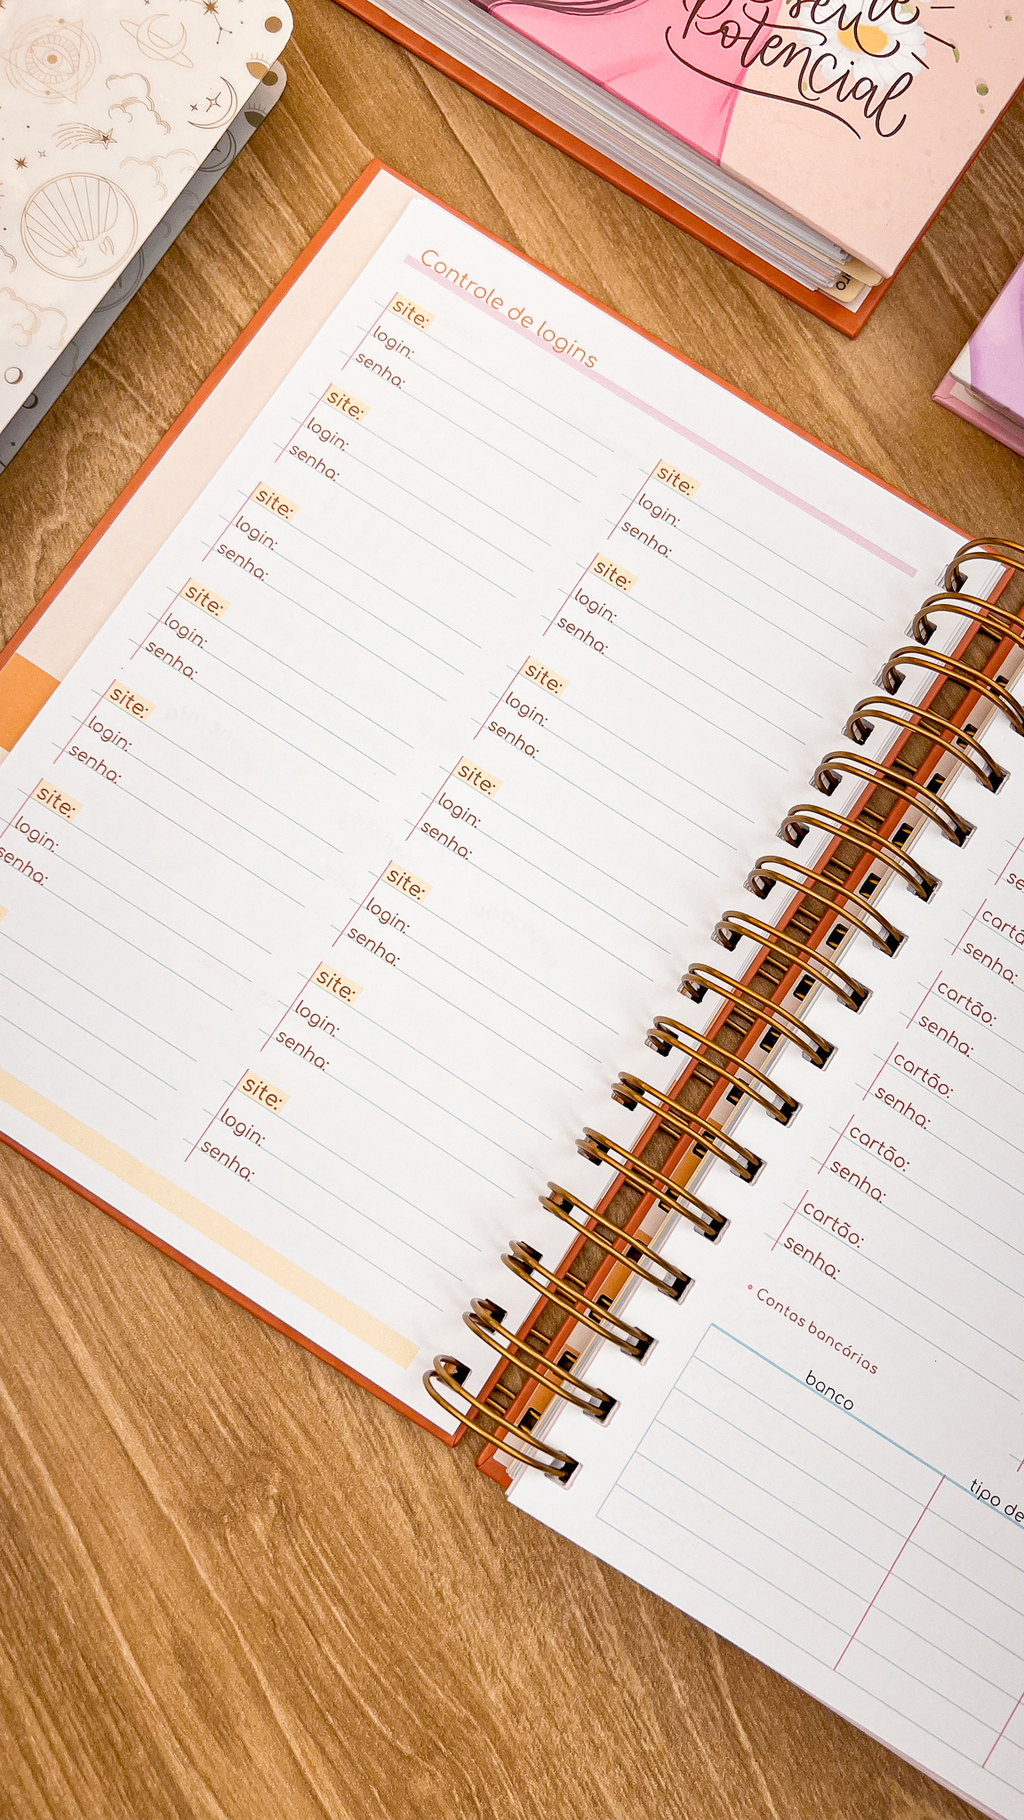 Potencial
Controle de logins
site:
login:
senha:
site:
login:
senha:
site:
login:
senha:
site:
login:
senha:
site:
login:
senha:
site:
login:
senha:
site:
login:
senha:
site:
login:
senha:
site:
login:
senha:
site:
login:
senha:
site:
login:
senha:
site:
login:
senha:
site:
login:
senha:
cartão:
senha:
cartão:
senha:
cartão:
senha:
cartão:
senha:
cartão:
senha:
• Contas bancárias
banco
tipo de